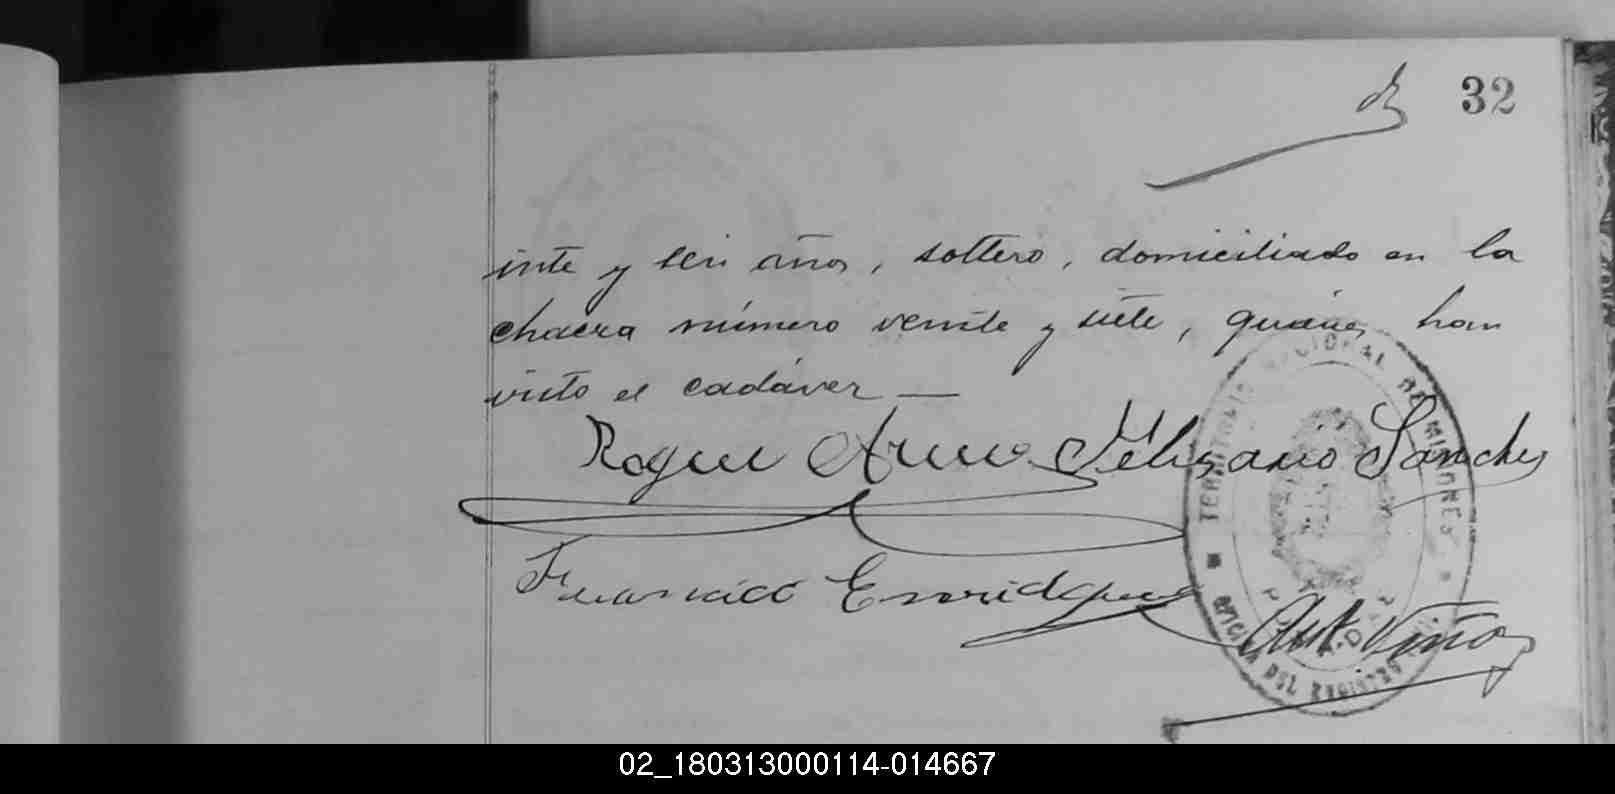 32
inte y seis años, soltero, domiciliado en la
chacra número veinte y siete, quienes han
visto el cadáver —
Roque Feliciano Sanches
Francisco Enridques
Ant. Viñas
TERRITORIO NACIONAL DE MISIONES
OFICINA DEL REGISTRO
02_180313000114-014667